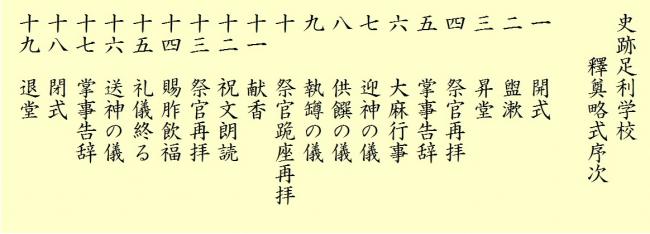 史跡足利学校
釋奠略式序次
一 開式
二 盥漱
三 昇堂
四 祭官再拝
五 掌事告辞
六 大麻行事
七 迎神の儀
八 供饌の儀
九 執罇の儀
十 祭官跪座再拝
十一 献香
十二 祝文朗読
十三 祭官再拝
十四 賜胙飲福
十五 礼儀終る
十六 送神の儀
十七 掌事告辞
十八 閉式
十九 退堂